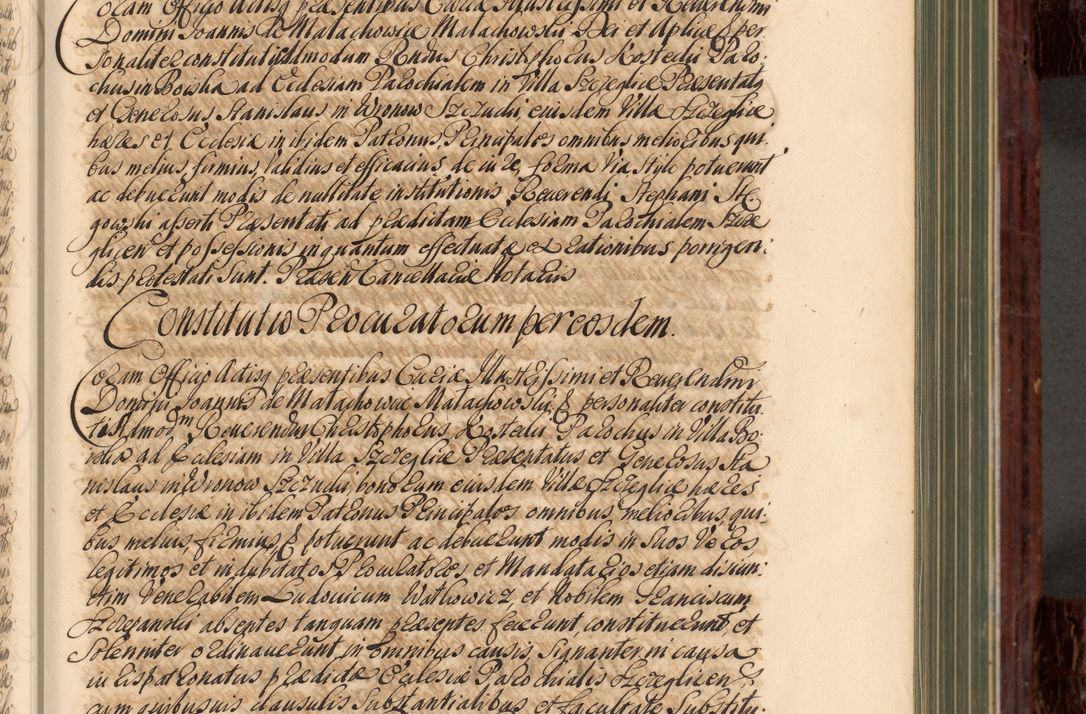 Coram Officio Actisq præsentibus Curiæ Illustrissimi et Reverendissimi
Domini Joannis de Małachowice Małachowski Dei et Aplicæ & per
sonaliter constituti Admodum Rndus Christophorus Kostecki Paro,
chus in Borsha ad Ecclesiam Parochialem in Villa Szczeglice Præsentatg
et Generosus Stanislaus in Wronow Szczucki, eiusdem Villæ Szczeglice
hæres et Ecclesiæ in ibidem Patronus, Principales omnibus melioribus qui.
bus melius, firmius, validius et efficacius de iure, forma Via Stylo potuerunt
ac debuerunt modis de nullitate institutionis Reverendi Stephani
gowski asserti Præsentati ad prædictam Ecclesiam Parochialem Szcze
glicen et possessionis inquantum effectuatæ et rationibus porrigen:
dis protestati sunt. Præsen Cancellariæ Notarius
Constitutio Procuratorum per eosdem.
Coram Officio Actisq præsentibus Curiæ Illustrissimi et Reverendmi
Domini Joannis de Małachowice Małachowski & personaliter constitu
ti Admodm Reverendus Christophorus Kostecki Parochus in Villa Bo:
ad Ecclesiam in Villa Szczeglice Præsentatus et Generosus Sta
nislaus in Wronow Szczucki, bonorum eiusdem Villæ Szczeglice hæres
et Ecclesiæ in ibidem Patronus Principales omnibus, melioribus, qui:
bus melius, firmius, & potuerunt ac debuerunt modis in suos veros
legitimos et indubitatos Procuratores et Mandatarios etiam disiun:
ctim Venerabilem Ludovicum Wathowicz, et Nobilem Franciscum
Szczepanski absentes tanquam præsentes fecerunt, constituerunt, et
solenniter ordinaverunt, in omnibus causis, signanter in causa
iurispatronatus prædictæ Ecclesiæ Parochialis Szczeglicens
cum quibusvis clausulis substantialibus et facultate substitu: